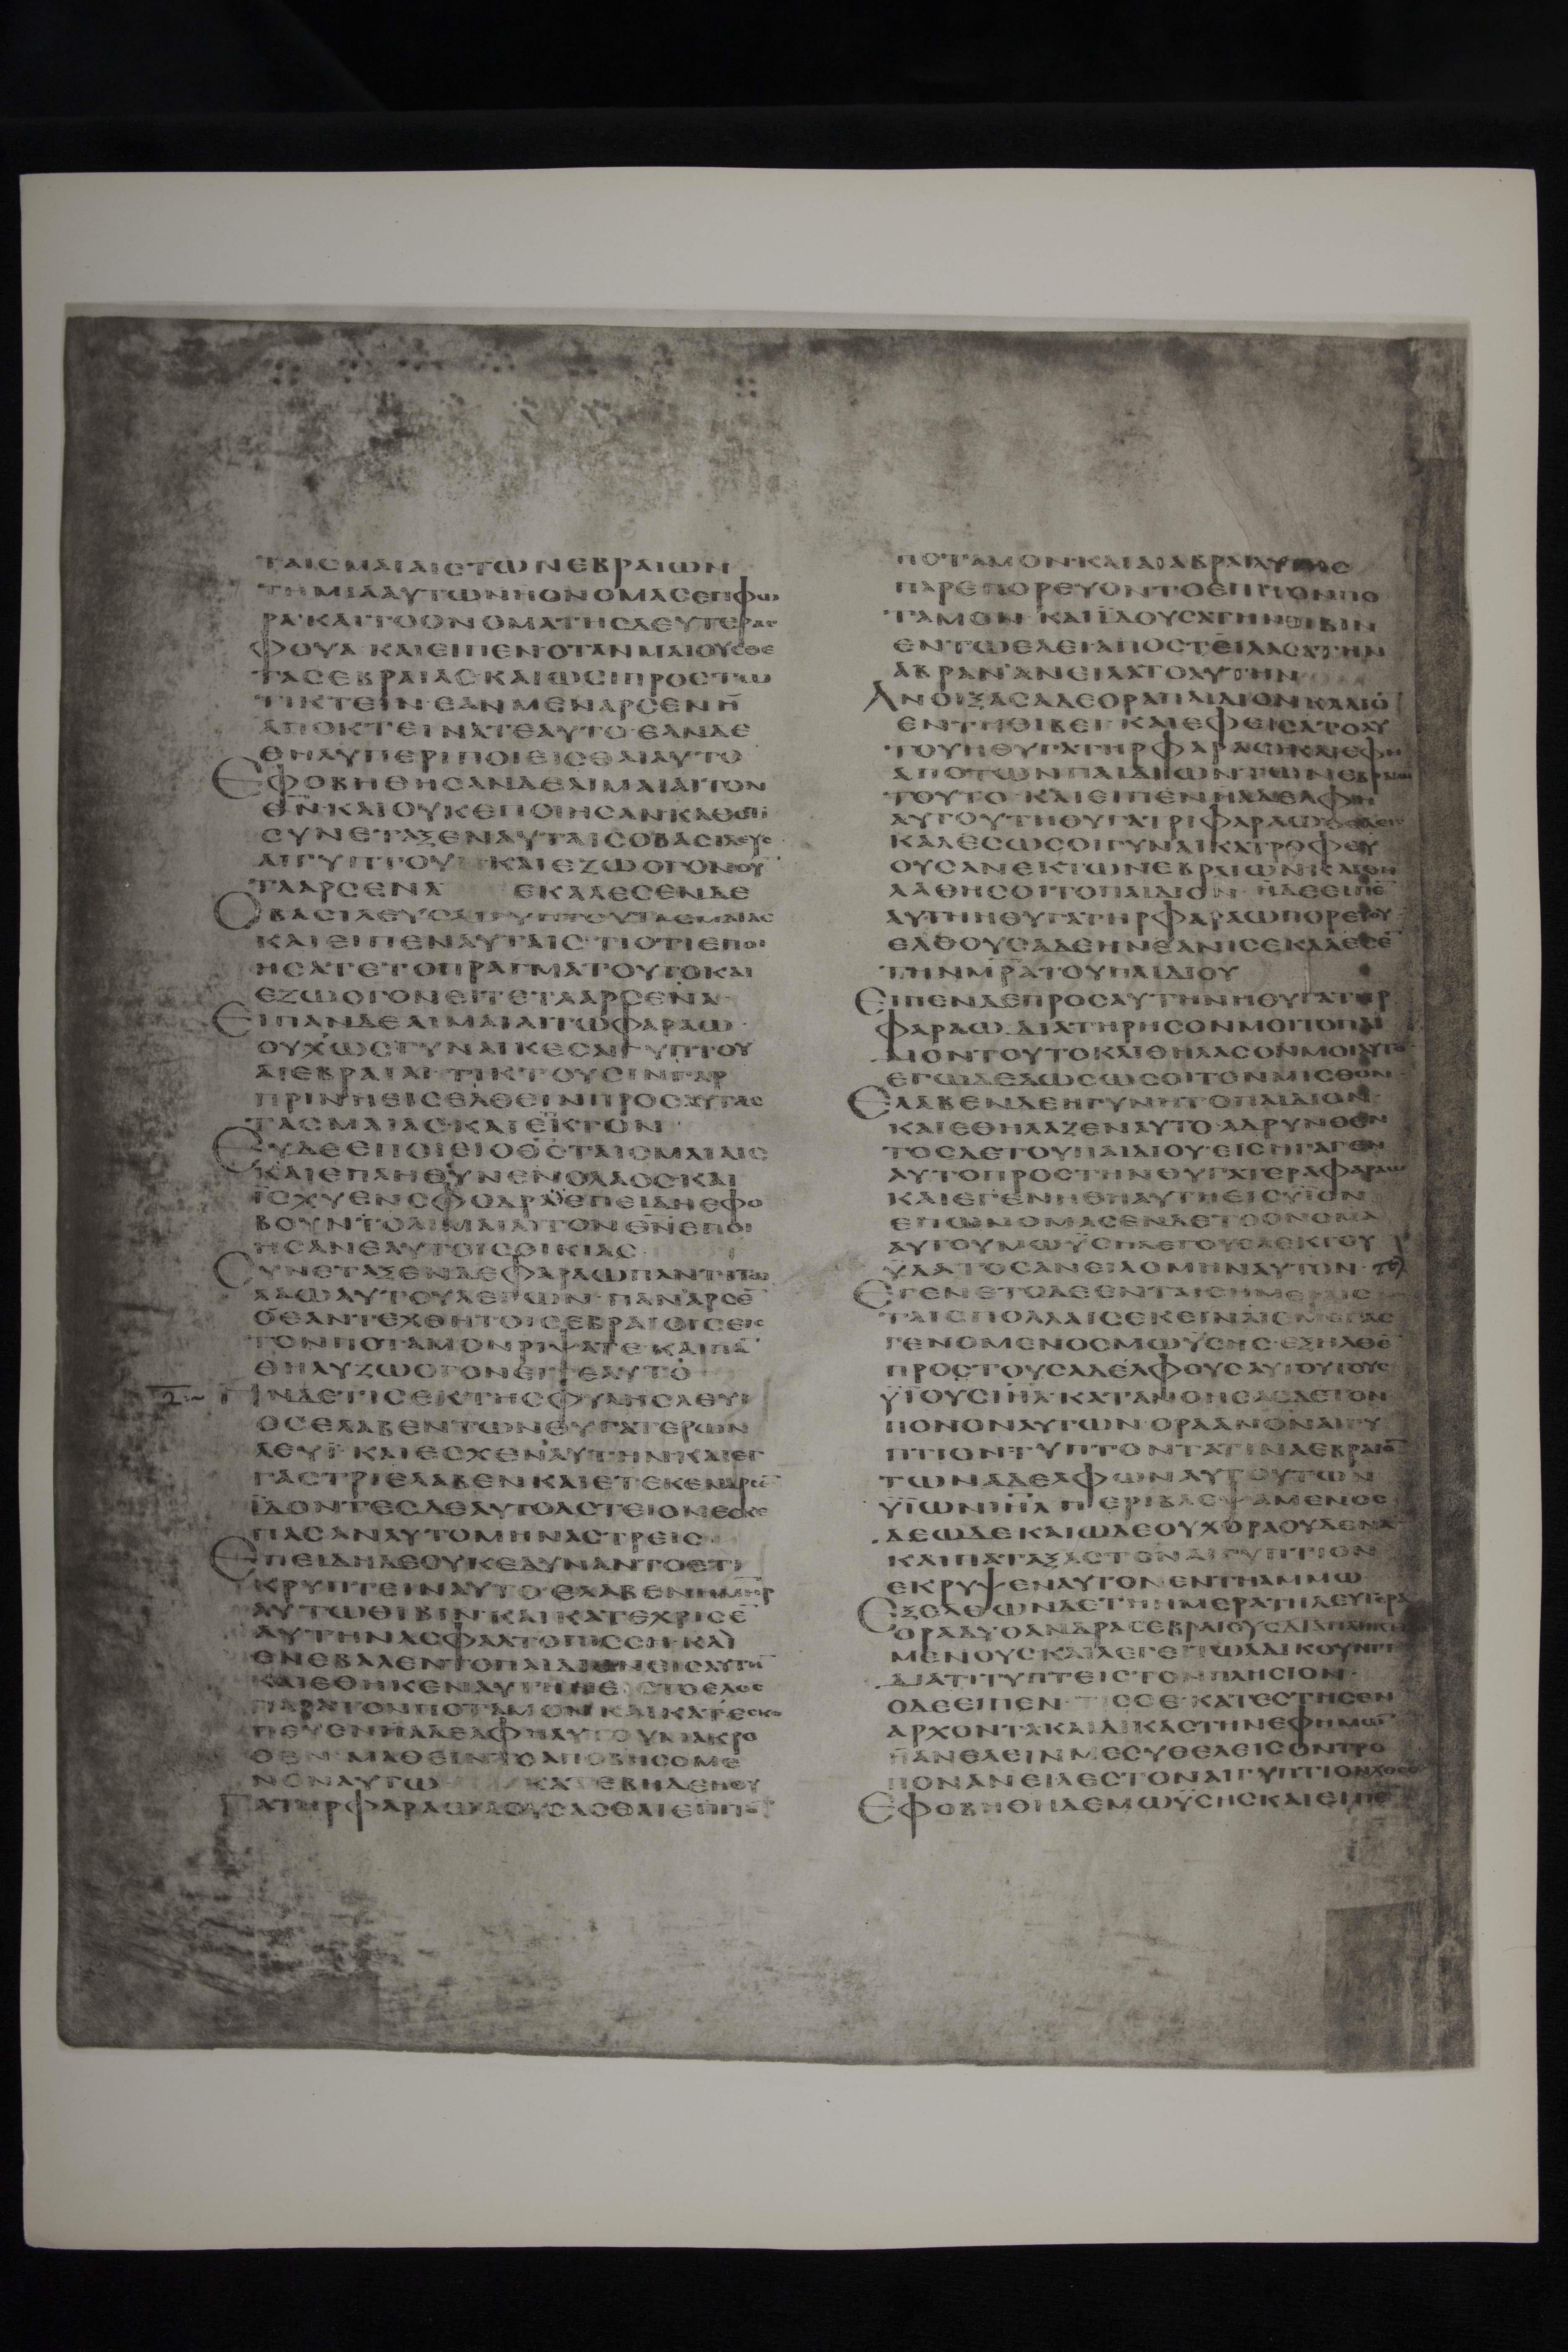 ΤΑΙCΜΑΙΑΙCΤΩΝΕΒΡΑΙΩΝ
ΤΗΜΙΑΑΥΤΩΝΗΟΝΟΜΑCΕΠΦΩ
ΡΑ·ΚΑΙΤΟΟΝΟΜΑΤΗCΔΕΥΤΕΡΑC
ΦΟΥΑ ΚΑΙΕΙΠΕΝΟΤΑΝΜΑΙΟΥCΘΕ
ΤΑCΕΒΡΑΙΑCΚΑΙΩCΙΠΡΟCΤΩ
ΤΙΚΤΕΙΝ·ΕΑΝΜΕΝΑΡCΕΝΗ̄
ΑΠΟΚΤΕΙΝΑΤΕΑΥΤΟ·ΕΑΝΔΕ
ΘΗΛΥΠΕΡΙΠΟΙΕΙCΘΑΙΑΥΤΟ
ΕΦΟΒΗΘΗCΑΝΔΕΑΙΜΑΙΑΙΤΟΝ
Θ̄Ν̄·ΚΑΙΟΥΚΕΠΟΙΗCΑΝΚΑΘΟΤΙ
CΥΝΕΤΑΞΕΝΑΥΤΑΙCΟΒΑCΙΛΕΥC
ΑΙΓΥΠΤΟΥ ΚΑΙΕΖΩΟΓΟΝΟῩ
ΤΑΑΡCΕΝΑ ΕΚΑΛΕCΕΝΔΕ
ΟΒΑCΙΛΕΥCΑΙΓΥΠΤΟΥΤΑCΜΑΙΑC
ΚΑΙΕΙΠΕΝΑΥΤΑΙC·ΤΙΟΤΙΕΠΟΙ
ΗCΑΤΕΤΟΠΡΑΓΜΑΤΟΥΤΟΚΑΙ
ΕΖΩΟΓΟΝΕΙΤΕΤΑΑΡCΕΝΑ
ΕΙΠΑΝΔΕΑΙΜΑΙΑΙΤΩΦΑΡΑΩ·
ΟΥΧΩCΓΥΝΑΙΚΕCΑΙΓΥΠΤΟΥ
ΑΙΕΒΡΑΙΑΙ·ΤΙΚΤΟΥCΙΝΓΑΡ
ΠΡΙΝΗΕΙCΕΛΘΕΙΝΠΡΟCΑΥΤΑC
ΤΑCΜΑΙΑC·ΚΑΙΕΤΙΚΤΟΝ
ΕΥΔΕΕΠΟΙΕΙΟΘ̄C̄ΤΑΙCΜΑΙΑΙC
ΚΑΙΕΠΛΗΘΥΝΕΝΟΛΑΟCΚΑΙ
ΙCΧΥΕΝCΦΟΔΡΑ·ΕΠΕΙΔΗΕΦΟ
ΒΟΥΝΤΟΑΙΜΑΙΑΙΤΟΝΘ̄Ν̄ΕΠΟΙ
ΗCΑΝΕΑΥΤΟΙCΟΙΚΙΑC·
CΥΝΕΤΑΞΕΝΔΕΦΑΡΑΩΠΑΝΤΙΤΩ
ΛΑΩΑΥΤΟΥΛΕΓΩΝ·ΠΑΝΑΡCΕ̄
ΟΕΑΝΤΕΧΘΗΤΟΙCΕΒΡΑΙΟΙCΕΙC
ΤΟΝΠΟΤΑΜΟΝΡΙΨΑΤΕ·ΚΑΙΠᾹ
ΘΗΛΥΖΩΟΓΟΝΕΙΤΕΑΥΤΟ·
ΗΝΔΕΤΙCΕΚΤΗCΦΥΛΗCΛΕΥΙ
ΟCΕΛΑΒΕΝΤΩΝΘΥΓΑΤΕΡΩΝ
ΛΕΥΪ·ΚΑΙΕCΧΕΝΑΥΤΗΝ·ΚΑΙΕΓ
ΓΑCΤΡΙΕΛΑΒΕΝΚΑΙΕΤΕΚΕΝΑΡCΕ̄
ΪΔΟΝΤΕCΔΕΑΥΤΟΑCΤΕΙΟΝΕCΚΕ
ΠΑCΑΝΑΥΤΟΜΗΝΑCΤΡΕΙC·
ΕΠΕΙΔΗΔΕΟΥΚΕΔΥΝΑΝΤΟΕΤΙ
ΚΡΥΠΤΕΙΝΑΥΤΟ·ΕΛΑΒΕΝΗΜ̄Η̄Ρ̄
ΑΥΤΩΘΙΒΙΝ·ΚΑΙΚΑΤΕΧΡΙCΕ̄
ΑΥΤΗΝΑCΦΑΛΤΟΠΙCCΗ·ΚΑΙ
ΕΝΕΒΑΛΕΝΤΟΠΑΙΔΙΟΝΕΙCΑΥΤΗ̄
ΚΑΙΕΘΗΚΕΝΑΥΤΗΝΕΙCΤΟΕΛΟC
ΠΑΡΑΤΟΝΠΟΤΑΜΟΝ·ΚΑΙΚΑΤΕCΚΟ
ΠΕΥΕΝΗΑΔΕΛΦΗΑΥΤΟΥΜΑΚΡΟ
ΘΕΝ ΜΑΘΕΙΝΤΟΑΠΟΒΗCΟΜΕ
ΝΟΝΑΥΤΩ ΚΑΤΕΒΗΔΕΗΘΥ
ΓΑΤΗΡΦΑΡΑΩΛΟΥCΑCΘΑΙΕΠΙΤΟ̄
ΠΟΤΑΜΟΝ·ΚΑΙΑΙΑΒΡΑΙΑΥΤΗC
ΠΑΡΕΠΟΡΕΥΟΝΤΟΕΠΙΤΟΝΠΟ
ΤΑΜΟΝ· ΚΑΙΪΔΟΥCΑΤΗΝΘΙΒΙΝ
ΕΝΤΩΕΛΕΙΑΠΟCΤΕΙΛΑCΑΤΗΝ
ΑΒΡΑΝΑΝΕΙΛΑΤΟΑΥΤΗΝ
ΑΝΟΙΞΑCΑΔΕΟΡΑΠΑΙΔΙΟΝΚΛΑΙΟ̄
ΕΝΤΗΘΙΒΕΙ·ΚΑΙΕΦΕΙCΑΤΟΑΥ
ΤΟΥΗΘΥΓΑΤΗΡΦΑΡΑΩ·ΚΑΙΕΦΗ
ΑΠΟΤΩΝΠΑΙΔΙΩΝΤΩΝΕΒΡΑΙΩ̄
ΤΟΥΤΟ·ΚΑΙΕΙΠΕΝΗΑΔΕΛΦΗ
ΑΥΤΟΥΤΗΘΥΓΑΤΡΙΦΑΡΑΩ
ΚΑΛΕCΩCΟΙΓΥΝΑΙΚΑΤΡΟΦΕΥ
ΟΥCΑΝΕΚΤΩΝΕΒΡΑΙΩΝ·ΚΑΙΘΗ
ΛΑΘΗCΟΙΤΟΠΑΙΔΙΟΝ·ΗΔΕΕΙΠΕ̄
ΑΥΤΗΗΘΥΓΑΤΗΡΦΑΡΑΩΠΟΡΕΥΟΥ·
ΕΛΘΟΥCΑΔΕΗΝΕΑΝΙCΕΚΑΛΕCΕ̄
ΤΗΝΜ̄Ρ̄Ᾱ·ΤΟΥΠΑΙΔΙΟΥ
ΕΙΠΕΝΔΕΠΡΟCΑΥΤΗΝΗΘΥΓΑΤΗΡ
ΦΑΡΑΩ·ΔΙΑΤΗΡΗCΟΝΜΟΙΤΟΠΑΙ
ΔΙΟΝΤΟΥΤΟΚΑΙΘΗΛΑCΟΝΜΟΙΑΥΤΟ
ΕΓΩΔΕΔΩCΩCΟΙΤΟΝΜΙCΘΟΝ·
ΕΛΑΒΕΝΔΕΗΓΥΝΗΤΟΠΑΙΔΙΟΝ·
ΚΑΙΕΘΗΛΑΖΕΝΑΥΤΟ·ΑΔΡΥΝΘΕΝ
ΤΟCΔΕΤΟΥΠΑΙΔΙΟΥ·ΕΙCΗΓΑΓΕΝ
ΑΥΤΟΠΡΟCΤΗΝΘΥΓΑΤΕΡΑΦΑΡΑΩ
ΚΑΙΕΓΕΝΗΘΗΑΥΤΗΕΙCΥΪΟΝ
ΕΠΩΝΟΜΑCΕΝΔΕΤΟΟΝΟΜΑ
ΑΥΤΟΥΜΩΫCΗΛΕΓΟΥCΑΕΚΤΟΥ
ΫΔΑΤΟCΑΝΕΙΛΟΜΗΝΑΥΤΟΝ·
ΕΓΕΝΕΤΟΔΕΕΝΤΑΙCΗΜΕΡΑΙC
ΤΑΙCΠΟΛΛΑΙCΕΚΕΙΝΑΙCΜΕΓΑC
ΓΕΝΟΜΕΝΟCΜΩΫCΗC·ΕΞΗΛΘΕ̄
ΠΡΟCΤΟΥCΑΔΕΛΦΟΥCΑΥΤΟΥΤΟΥC
ΫΙΟΥCῙΗ̄Λ̄·ΚΑΤΑΝΟΗCΑCΔΕΤΟΝ
ΠΟΝΟΝΑΥΤΩΝ·ΟΡΑΑΝΟΝΑΙΓΥ
ΠΤΙΟΝΤΥΠΤΟΝΤΑΤΙΝΑΕΒΡΑΙΟ̄
ΤΩΝΑΔΕΛΦΩΝΑΥΤΟΥΤΩΝ
ΫΙΩΝῙΗ̄Λ̄ ΠΕΡΙΒΛΕΨΑΜΕΝΟC
ΔΕΩΔΕΚΑΙΩΔΕΟΥΧΟΡΑΟΥΔΕΝΑ
ΚΑΙΠΑΤΑΞΑCΤΟΝΑΙΓΥΠΤΙΟΝ
ΕΚΡΥΨΕΝΑΥΤΟΝΕΝΤΗΑΜΜΩ
ΕΞΕΛΘΩΝΔΕΤΗΗΜΕΡΑΤΗΔΕΥΤΕΡΑ
ΟΡΑΔΥΟΑΝΔΡΑCΕΒΡΑΙΟΥCΔΙΑΠΛΗΚΤΙ
ΜΕΝΟΥC·ΚΑΙΛΕΓΕΙΤΩΑΔΙΚΟΥΝΤΙ
ΔΙΑΤΙΤΥΠΤΕΙCΤΟΝΠΛΗCΙΟΝ·
ΟΔΕΕΙΠΕΝ·ΤΙCCΕ·ΚΑΤΕCΤΗCΕΝ
ΑΡΧΟΝΤΑΚΑΙΔΙΚΑCΤΗΝΕΦΗΜΩ̄
ΠΑΝΕΛΕΙΝΜΕCΥΘΕΛΕΙCΟΝΤΡΟ
ΠΟΝΑΝΕΙΛΕCΤΟΝΑΙΓΥΠΤΙΟΝΧΘΕC
ΕΦΟΒΗΘΗΔΕΜΩΫCΗCΚΑΙΕΙΠΕ̄